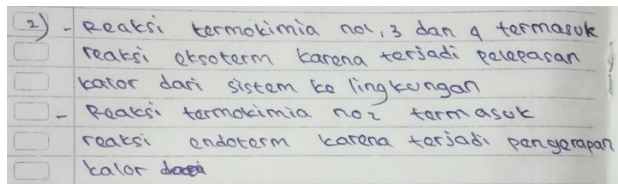 2) - Reaksi termokimia no1, 3 dan 4 termasuk
reaksi eksoterm karena terjadi pelepasan
kalor dari sistem ke lingkungan
- Reaksi termokimia no2 termasuk
reaksi endoterm karena terjadi pengerapan
kalor